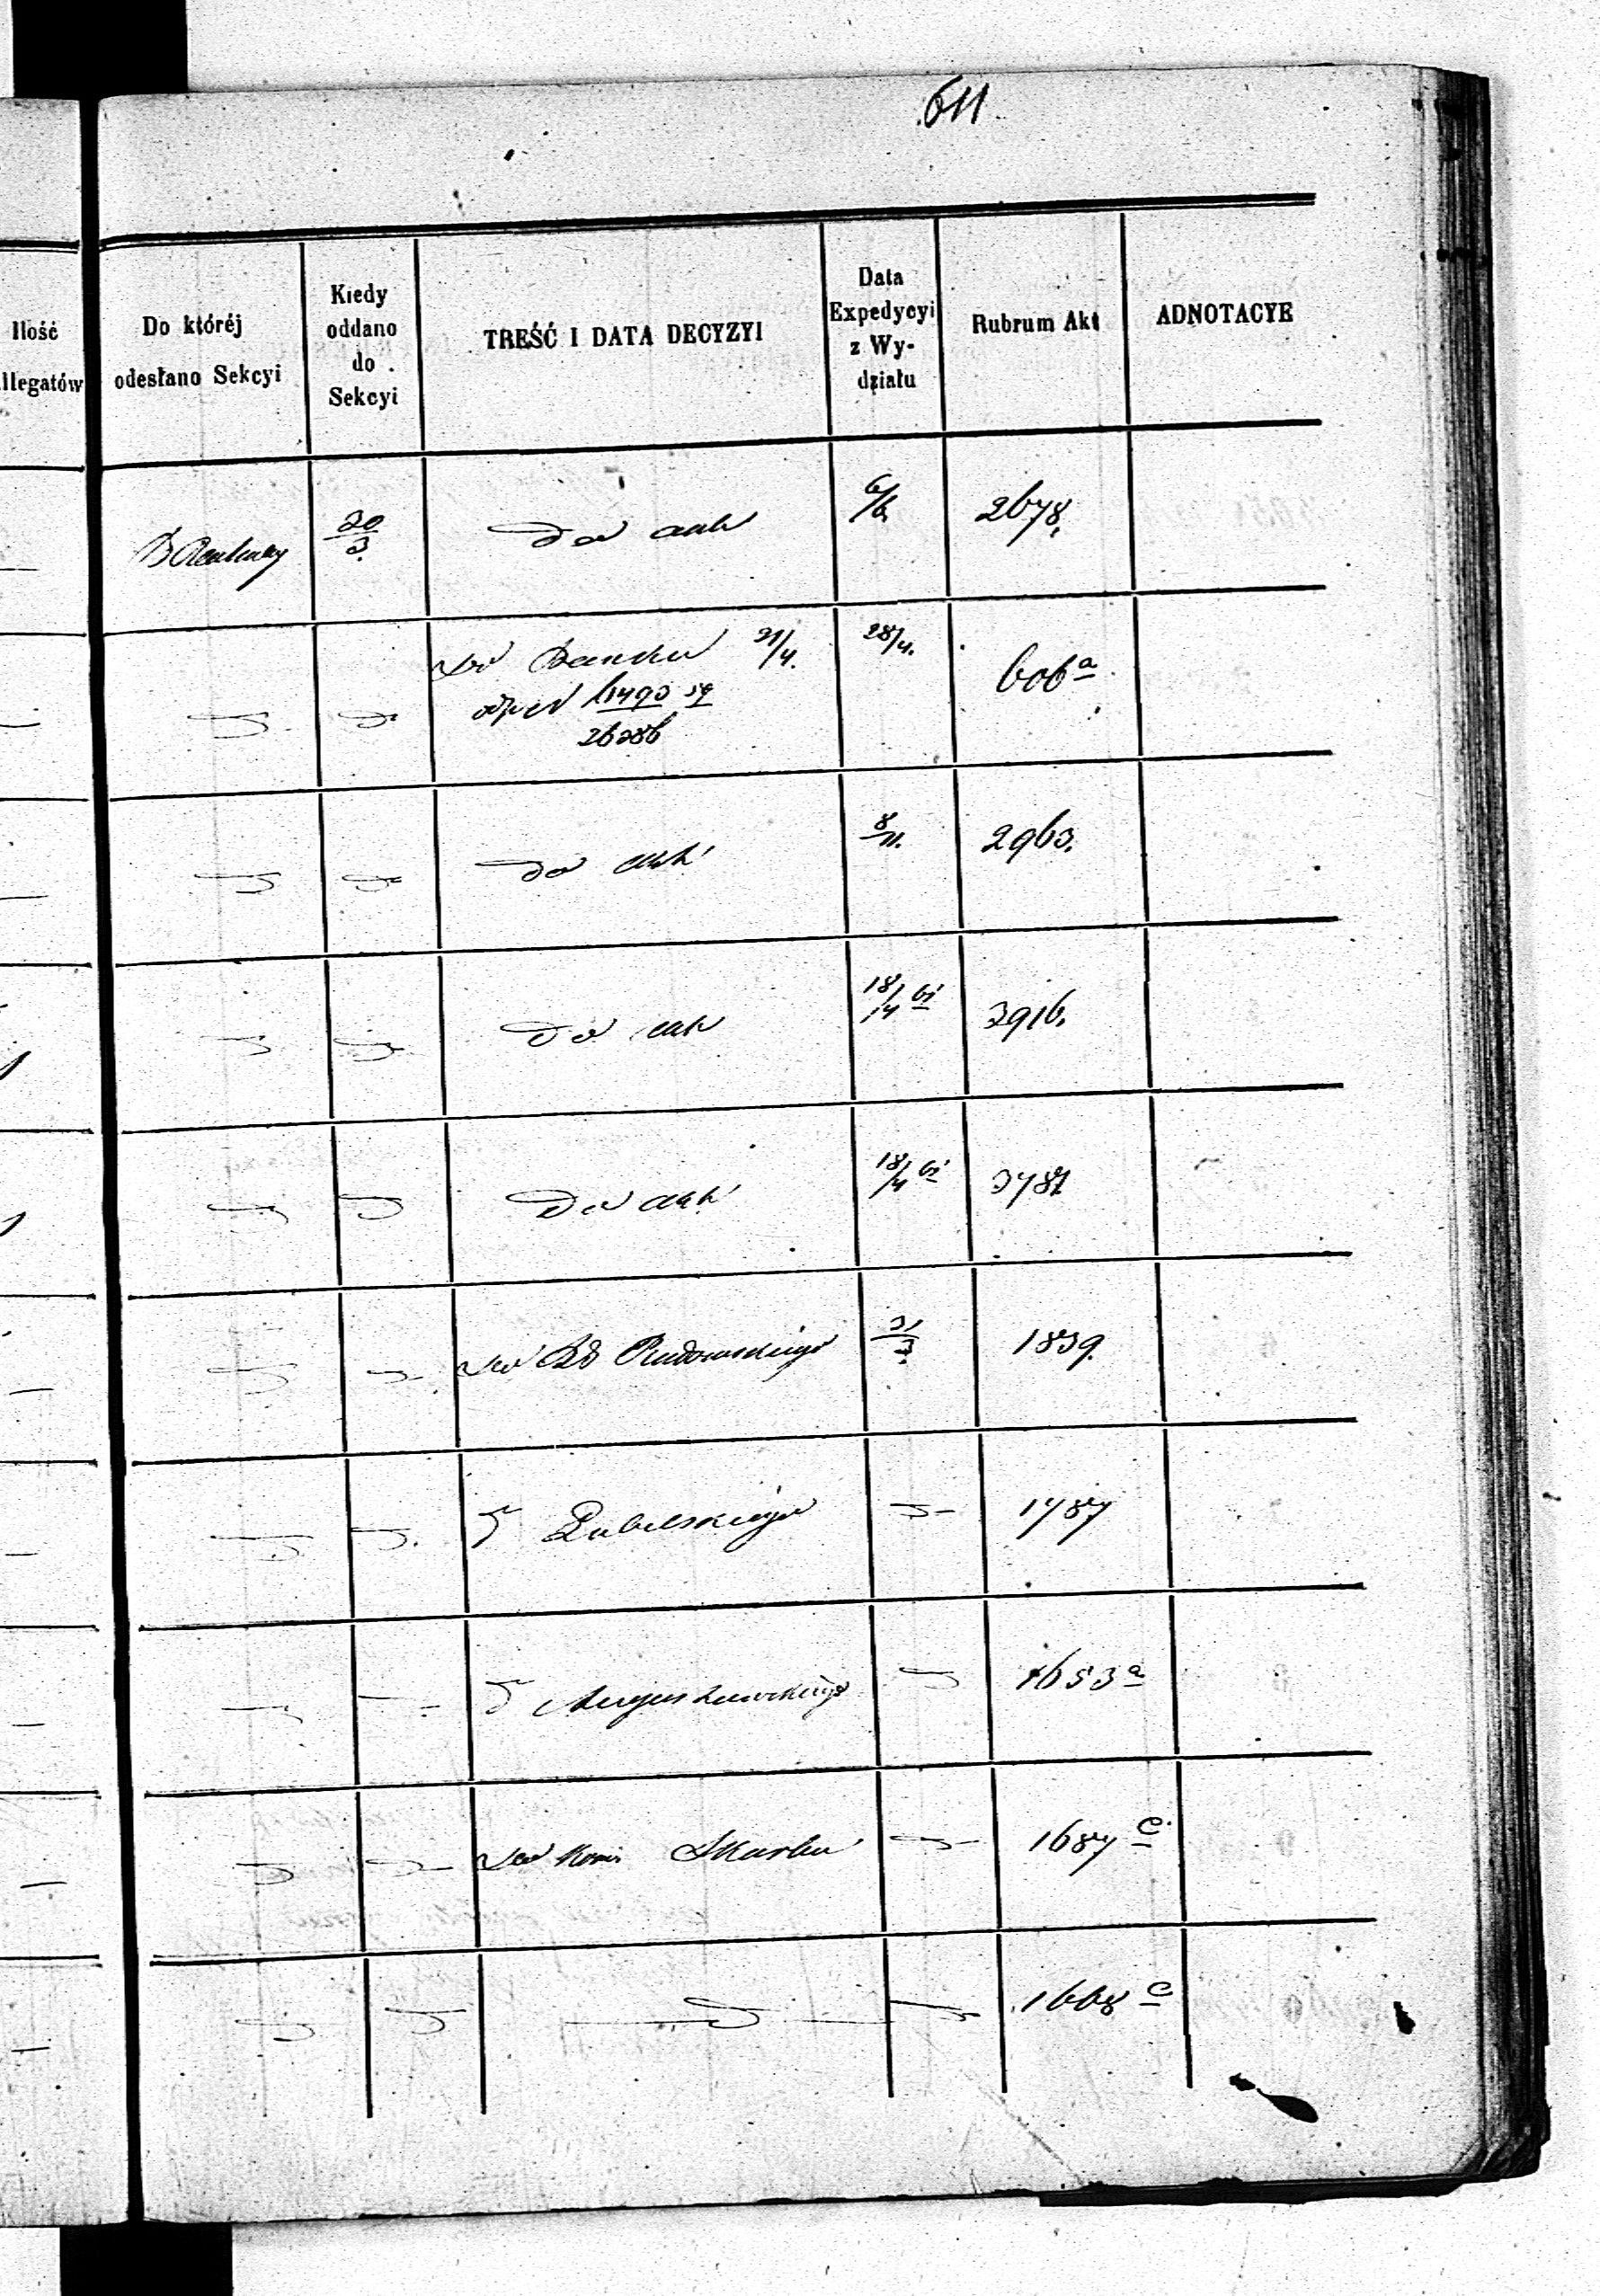 611
Ilość
llegatów
Do któréj
odesłano Sekcyi
Kiedy
oddano
do
Sekcyi
TREŚĆ I DATA DECYZYI
Data
Expedycyi
z Wy-
działu
Rubrum Akt
ADNOTACYE
30/3.
do akt
6/6.
2678.
do Banku 21/4.
28/4.
606 a
do akt
8/11.
2963.
do akt
18/4 61
3916.
do akt
18/4 61
3781
do Rd Radomskiego
31/3.
1839.
Lubelskiego
1787
Augustowskiego
1653 a
do Kom Skarbu
1687 c.
1668 c